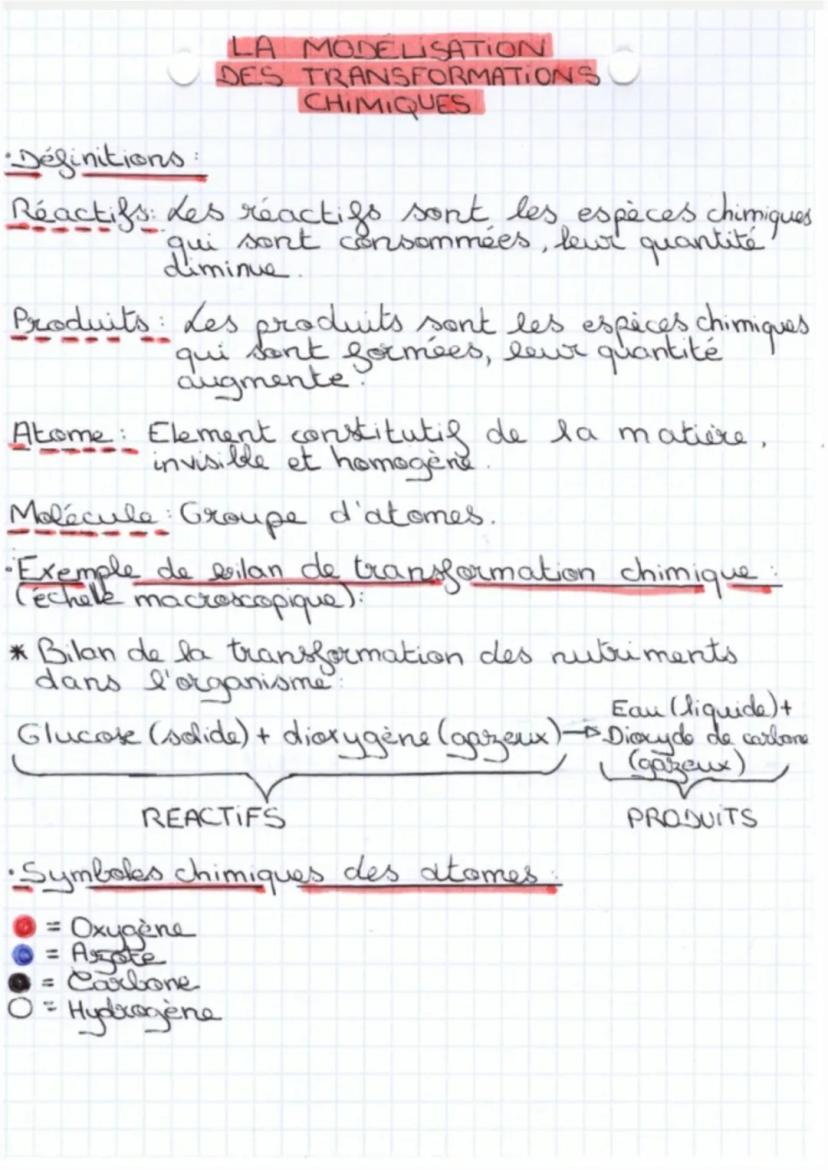 LA MODÉLISATION
DES TRANSFORMATIONS
CHIMIQUES
• Définitions :
Réactifs : Les réactifs sont les espèces chimiques
qui sont consommées, leur quantité
diminue.
Produits : Les produits sont les espèces chimiques
qui sont formées, leur quantité
augmente.
Atome : Element constitutif de la matière,
invisible et homogène.
Molécule : Groupe d'atomes.
• Exemple de bilan de transformation chimique :
(échelle macroscopique):
* Bilan de la transformation des nutriments
dans l'organisme:
Eau (liquide) +
Glucose (solide) + dioxygène (gazeux) → Dioxyde de carbone
(gazeux)
REACTIFS PRODUITS
• Symboles chimiques des atomes :
= Oxygène
= Azote
= Carbone
= Hydrogène